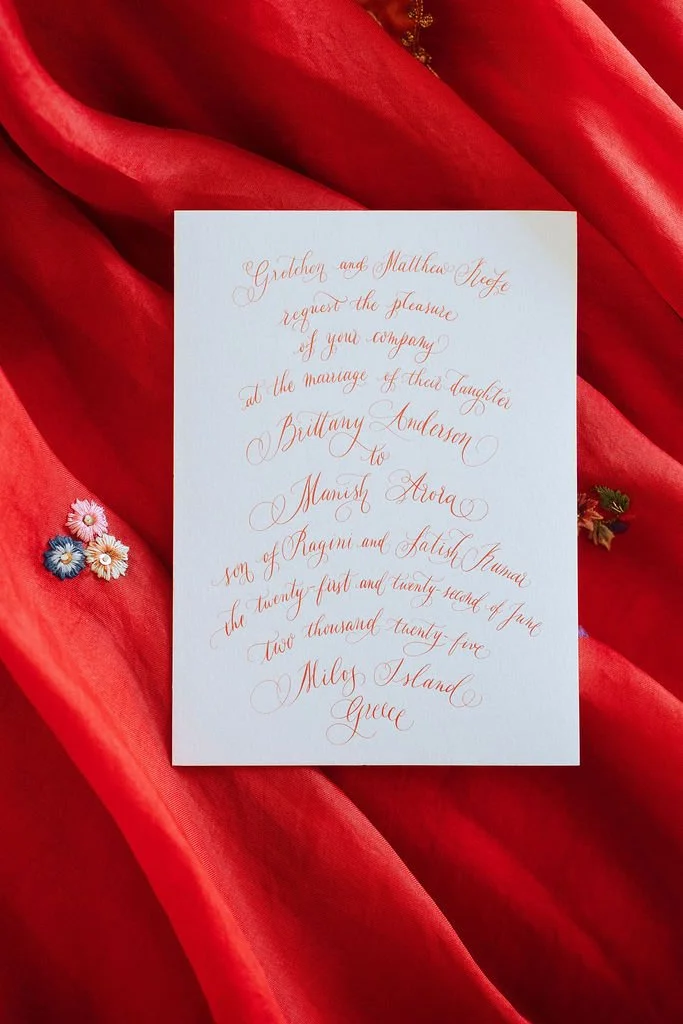 Gretchen and Matthew Keefe
request the pleasure
of your company
at the marriage of their daughter
Brittany Anderson
to
Manish Arora
son of Ragini and Satish Kumar
the twenty-first and twenty-second of June
two thousand twenty-five
Milos Island
Greece